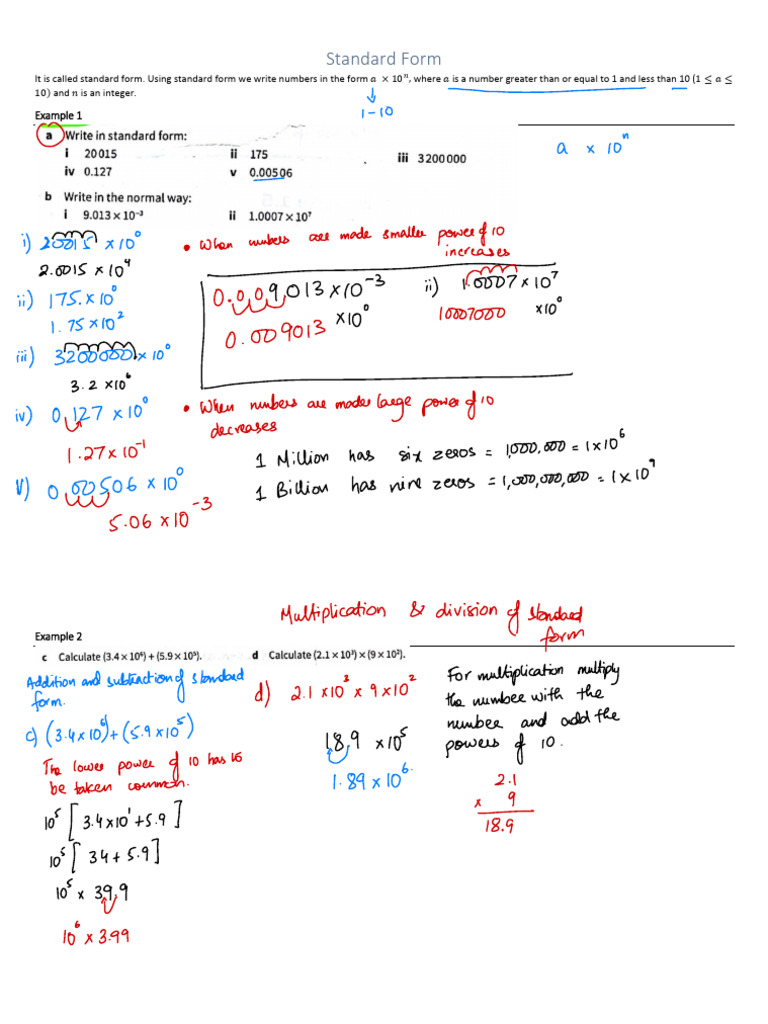 Standard Form
It is called standard form. Using standard form we write numbers in the form a × 10ⁿ, where a is a number greater than or equal to 1 and less than 10 (1 ≤ a ≤
10) and n is an integer.
1-10
Example 1
a Write in standard form:
i 20015 ii 175 iii 3200000
iv 0.127 v 0.00506
a × 10ⁿ
b Write in the normal way:
i 9.013 × 10⁻³ ii 1.0007 × 10⁷
i) 20015 × 10⁰
2.0015 × 10⁴
ii) 175. × 10⁰
1.75 × 10²
iii) 3200000 × 10⁰
3.2 × 10⁶
iv) 0.127 × 10⁰
1.27 × 10⁻¹
v) 0.00506 × 10⁰
5.06 × 10⁻³
• When numbers are made smaller power of 10
increases
0.009.013 × 10⁻³
0.009013 × 10⁰
ii) 1.0007 × 10⁷
10007000 × 10⁰
• When numbers are made large power of 10
decreases
1 Million has six zeros = 1,000,000 = 1 × 10⁶
1 Billion has nine zeros = 1,000,000,000 = 1 × 10⁹
Multiplication & division of standard
form
Example 2
c Calculate (3.4 × 10⁶) + (5.9 × 10⁵). d Calculate (2.1 × 10³) × (9 × 10²).
Addition and subtraction of standard
form.
c) (3.4 × 10⁶) + (5.9 × 10⁵)
The lower power of 10 has to
be taken common.
10⁵ [3.4 × 10¹ + 5.9]
10⁵ [34 + 5.9]
10⁵ × 39.9
10⁶ × 3.99
d) 2.1 × 10³ × 9 × 10²
18.9 × 10⁵
1.89 × 10⁶.
For multiplication multiply
the number with the
number and add the
powers of 10.
2.1
× 9
18.9